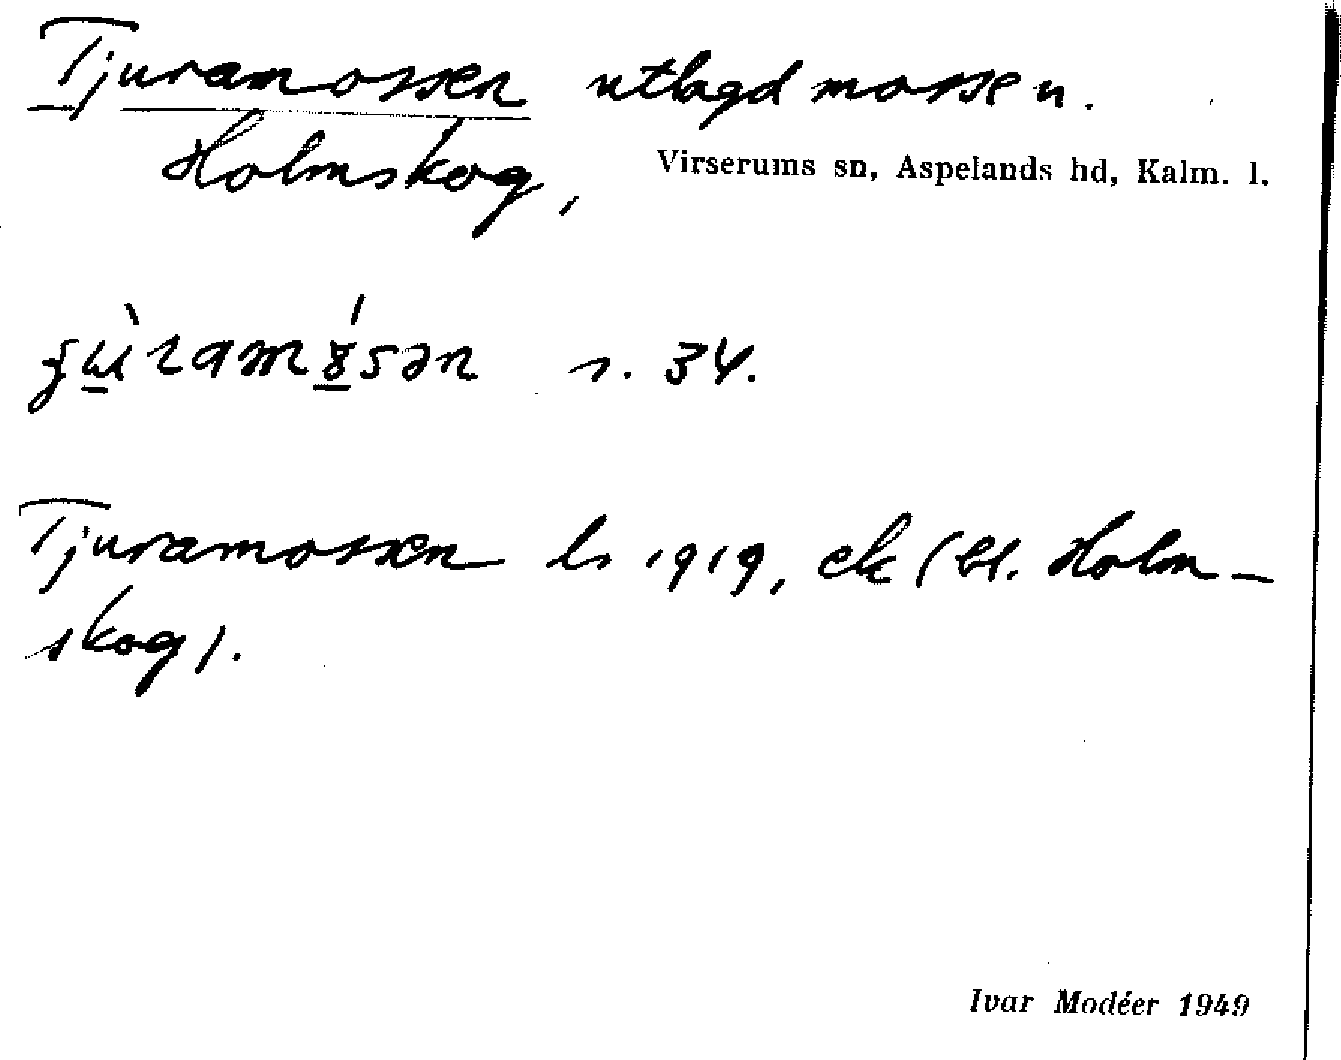 Tjuramossen utlagd mossen.
Holmskog, Virserums sn, Aspelands hd, Kalm. l.
s. 34.
Tjuramossen ls 1919, ek (bl. Holm-
skog).
Ivar Modéer 1949